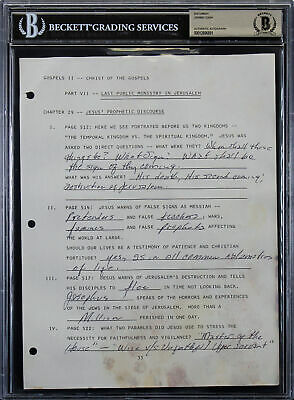 BECKETT GRADING SERVICES
BECKETT
AUTHENTIC AUTOGRAPH
GOSPELS II -- CHRIST OF THE GOSPELS
PART VII -- LAST PUBLIC MINISTRY IN JERUSALEM
CHAPTER 29 -- JESUS' PROPHETIC DISCOURSE
I. PAGE 512: HERE WE SEE PORTRAYED BEFORE US TWO KINGDOMS --
"THE TEMPORAL KINGDOM VS. THE SPIRITUAL KINGDOM." JESUS WAS
ASKED TWO DIRECT QUESTIONS - WHAT WERE THEY? When shall these
things be? What sign - What shall be
the sign of thy coming
WHAT WAS HIS ANSWER? His death, His second coming,
destruction of Jerusalem
II. PAGE 514: JESUS WARNS OF FALSE SIGNS AS MESSIAH --
Pretenders AND FALSE teachers, WARS,
famines AND FALSE Prophets AFFECTING
THE WORLD AT LARGE.
SHOULD OUR LIVES BE A TESTIMONY OF PATIENCE AND CHRISTIAN
FORTITUDE? yes, as in all common
of life.
III. PAGE 517: JESUS WARNS OF JERUSALEM'S DESTRUCTION AND TELLS
HIS DISCIPLES TO flee IN TIME NOT LOOKING BACK.
Josephus SPEAKS OF THE HORRORS AND EXPERIENCES
OF THE JEWS IN THE SIEGE OF JERUSALEM. MORE THAN A
Million PERISHED IN ONE DAY.
IV. PAGE 522: WHAT TWO PARABLES DID JESUS USE TO STRESS THE
NECESSITY FOR FAITHFULNESS AND VIGILANCE? "Master of the
House" - Wise v/s Unfaithful Upper Servant"